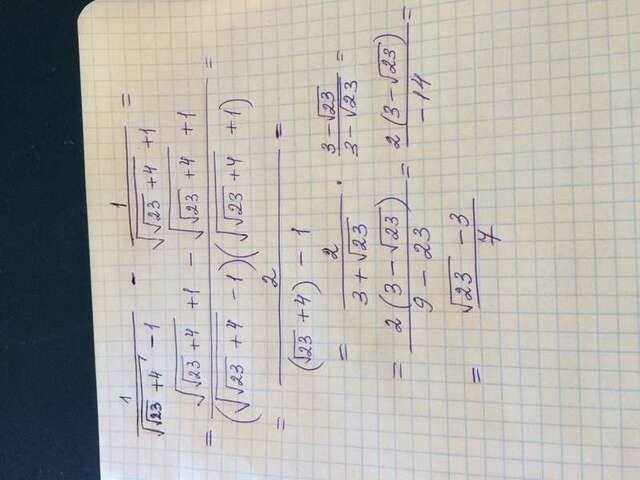 1/(√(√23 + 4) - 1) - 1/(√(√23 + 4) + 1) =
= (√(√23 + 4) + 1 - √(√23 + 4) + 1)/((√(√23 + 4) - 1)(√(√23 + 4) + 1)) =
= 2/((√23 + 4) - 1) =
= 2/(3 + √23) · (3 - √23)/(3 - √23) =
= 2(3 - √23)/(9 - 23) = 2(3 - √23)/(-14) =
= (√23 - 3)/7